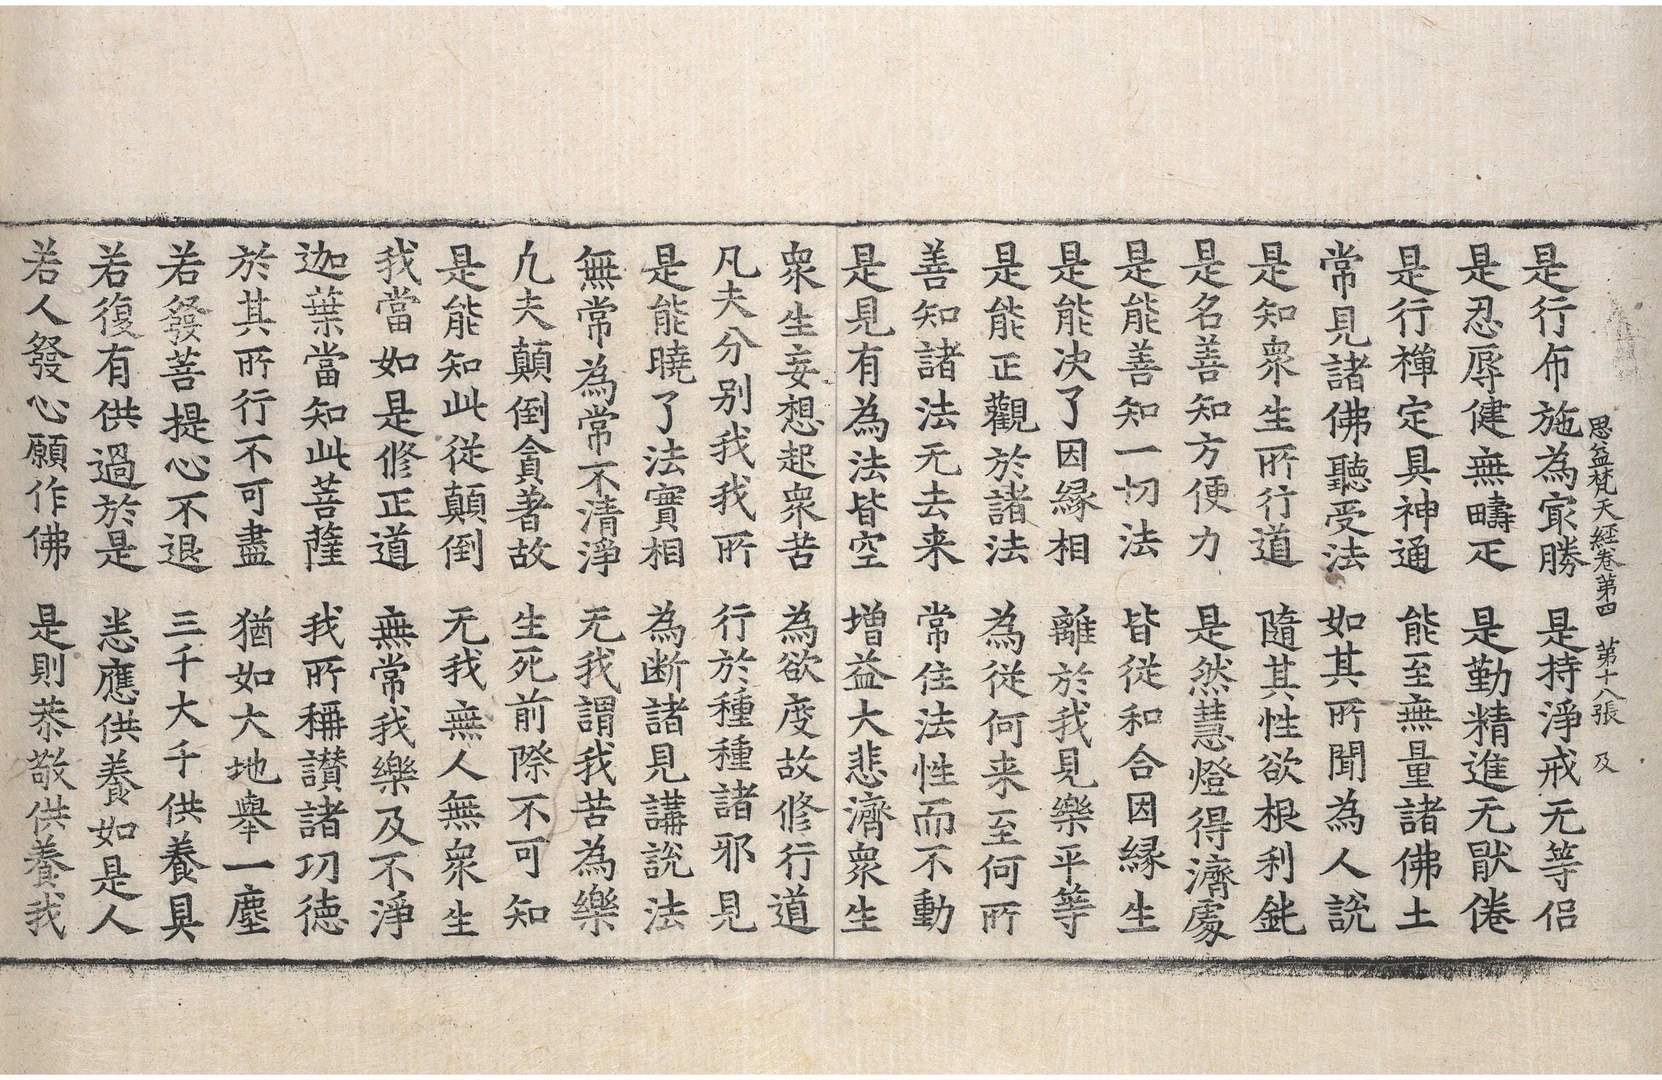 思益梵天經卷第四　第十八張　及
是行布施為㝡勝　是持淨戒无等侶
是忍辱健無疇疋　是勤精進无猒倦
是行禪定具神通　能至無量諸佛土
常見諸佛聽受法　如其所聞為人說
是知衆生所行道　隨其性欲根利鈍
是名善知方便力　是然慧燈得濟處
是能善知一切法　皆從和合因縁生
是能决了因縁相　離於我見樂平等
是能正觀於諸法　為從何来至何所
善知諸法无去来　常住法性而不動
是見有為法皆空　增益大悲濟衆生
衆生妄想起衆苦　為欲度故修行道
凡夫分别我我所　行於種種諸邪見
是能曉了法實相　為断諸見講說法
無常為常不清淨　无我謂我苦為樂
凡夫顛倒貪著故　生死前際不可知
是能知此從顛倒　无我無人無衆生
我當如是修正道　無常我樂及不淨
迦葉當知此菩薩　我所稱讃諸功徳
於其所行不可盡　猶如大地舉一塵
若發菩提心不退　三千大千供養具
若復有供過於是　悉應供養如是人
若人發心願作佛　是則恭敬供養我